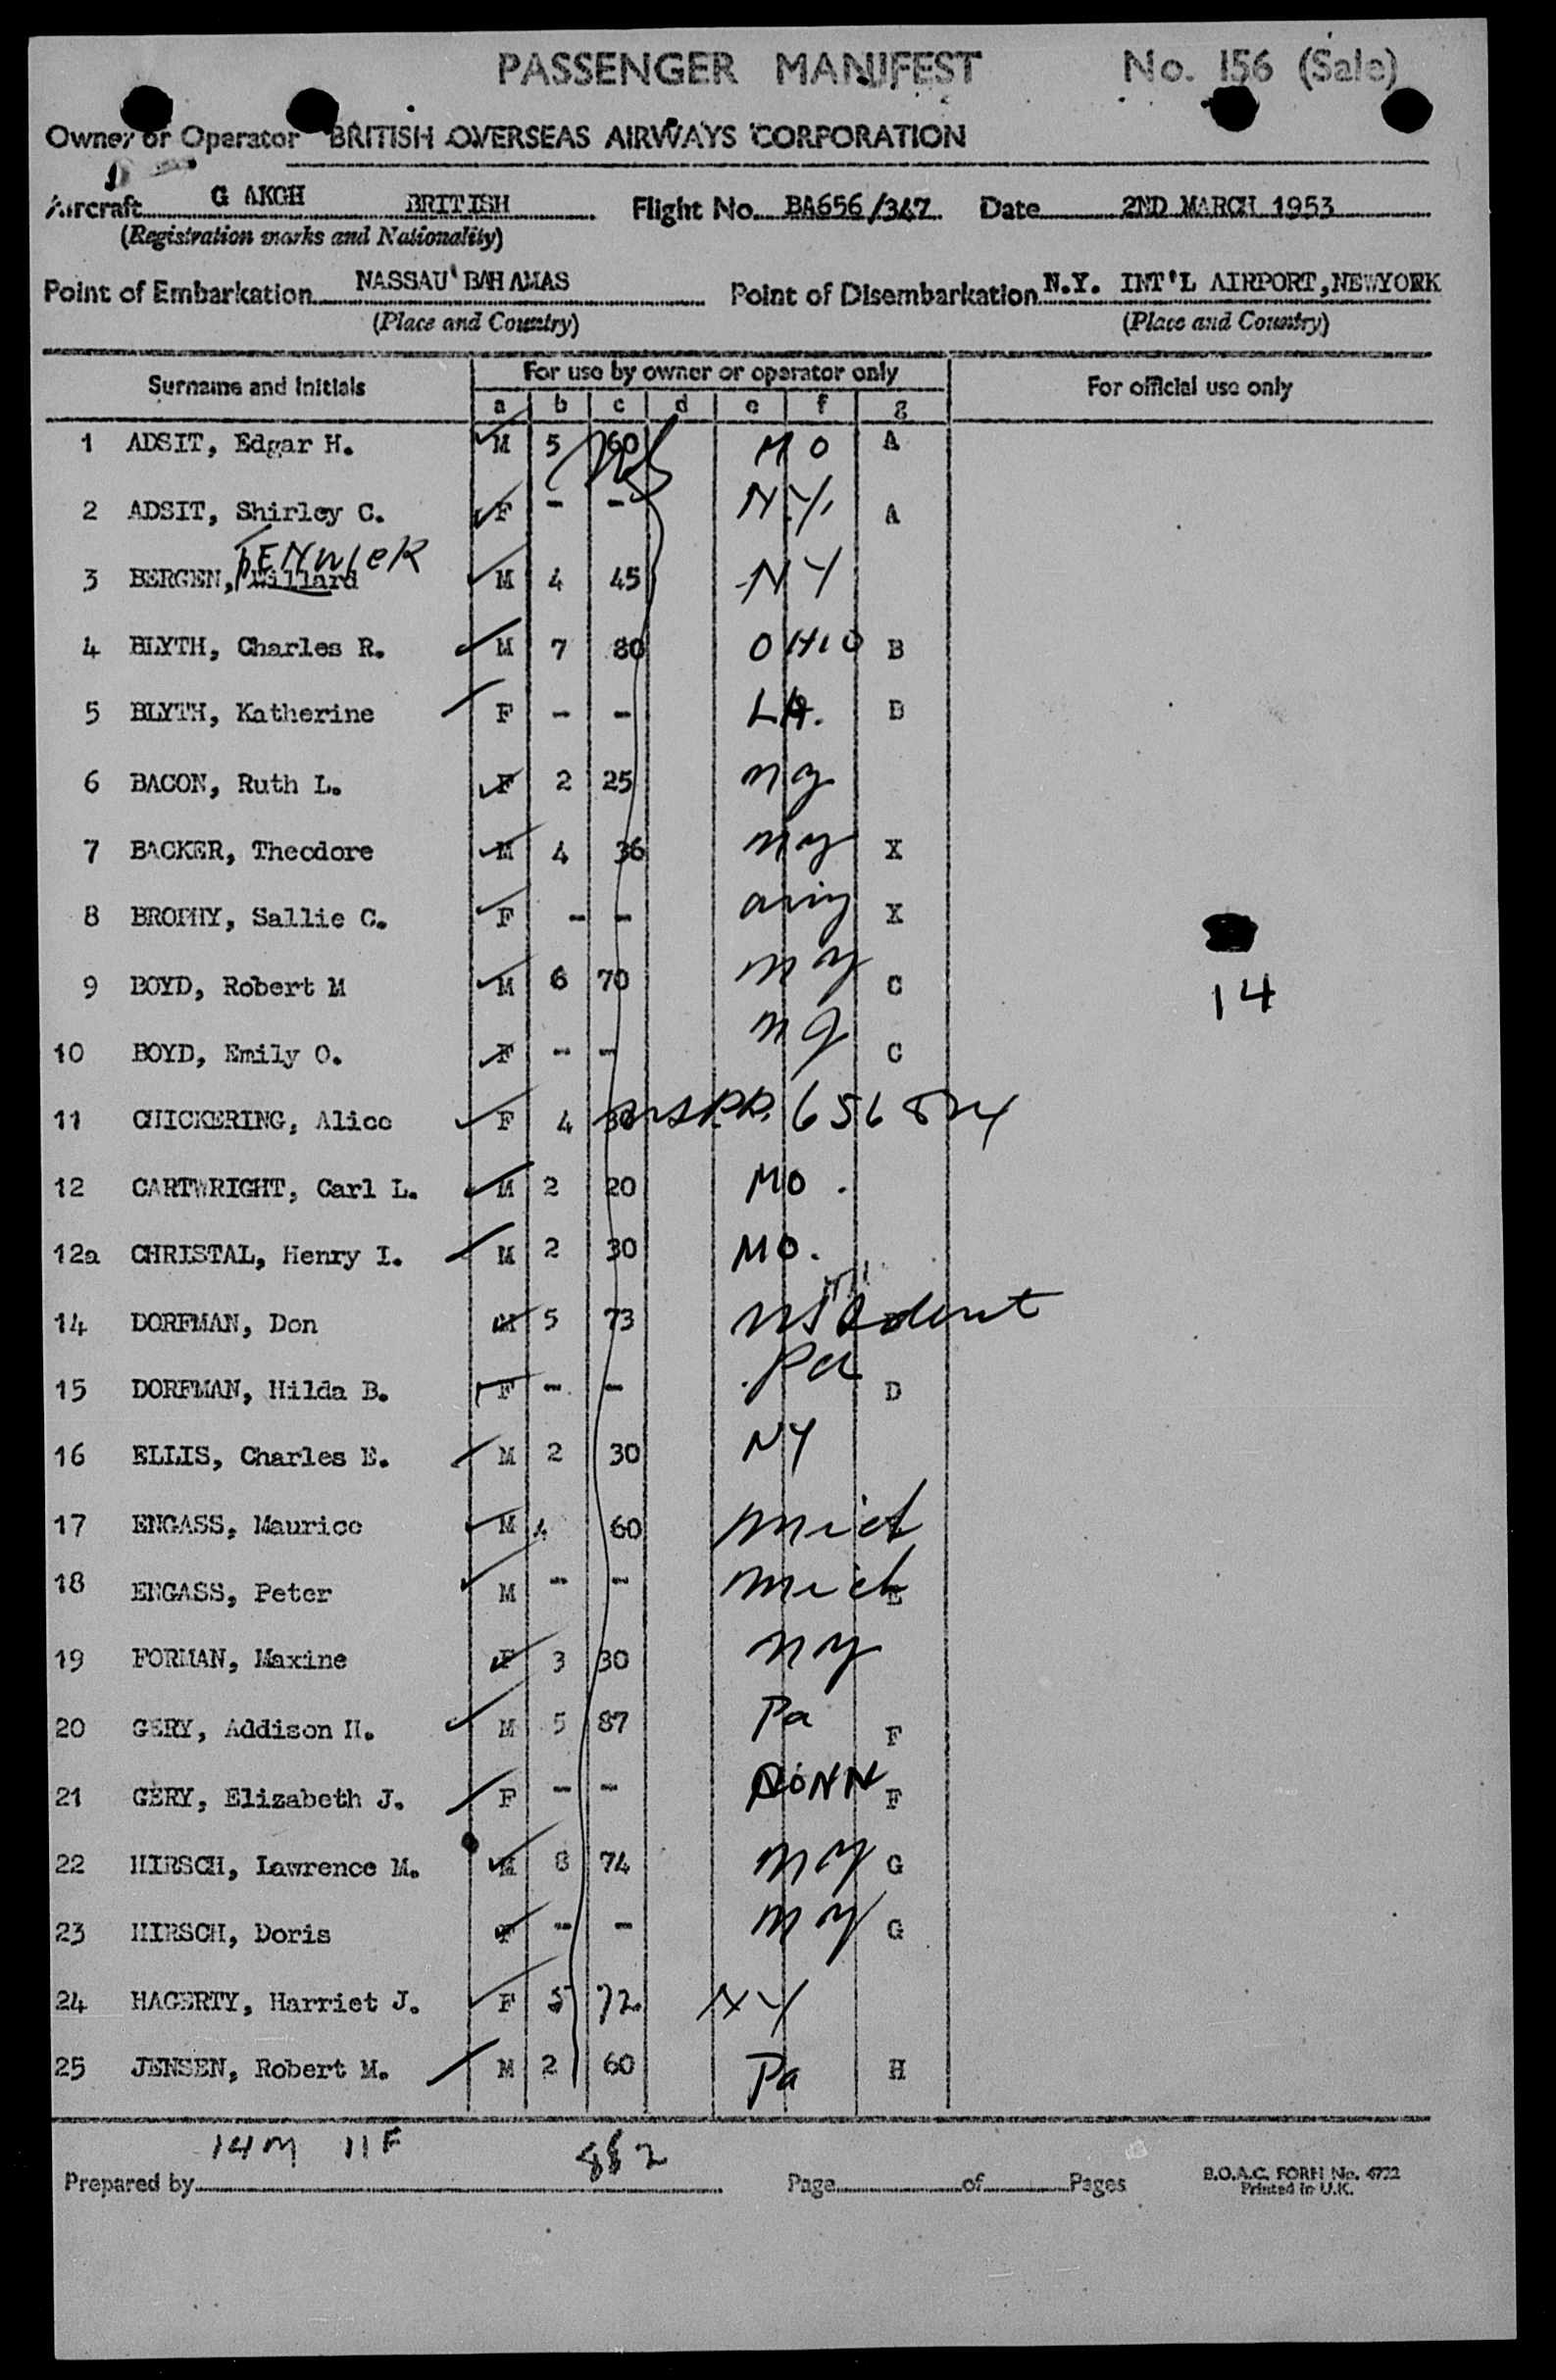 PASSENGER MANIFEST No. 156 (Sale)
Owner or Operator BRITISH OVERSEAS AIRWAYS CORPORATION
Aircraft G AKGH BRITISH Flight No. BA656/347 Date 2ND MARCH 1953
(Registration marks and Nationality)
Point of Embarkation NASSAU BAHAMAS Point of Disembarkation N.Y. INT'L AIRPORT, NEWYORK
(Place and Country) (Place and Country)
Surname and Initials For use by owner or operator only For official use only
a b c d e f g
1 ADSIT, Edgar H. M 5 60 MO A
2 ADSIT, Shirley C. F - - N.Y. A
FENWICK
3 BERGEN, Willard M 4 45 NY
4 BLYTH, Charles R. M 7 80 OHIO B
5 BLYTH, Katherine F - - LA. B
6 BACON, Ruth L. F 2 25 ny
7 BACKER, Theodore M 4 36 ny X
8 BROPHY, Sallie C. F - - X
9 BOYD, Robert M M 6 70 ny C
14
10 BOYD, Emily O. F - - C
11 CHICKERING, Alice F 4 30
12 CARTWRIGHT, Carl L. M 2 20 MO.
12a CHRISTAL, Henry I. M 2 30 MO.
14 DORFMAN, Don M 5 73
15 DORFMAN, Hilda B. F - - Pa D
16 ELLIS, Charles E. M 2 30 NY
17 ENGASS, Maurice M 4 60 mich
18 ENGASS, Peter M - - mich E
19 FORMAN, Maxine F 3 30 ny
20 GERY, Addison H. M 5 87 Pa F
21 GERY, Elizabeth J. F - - CONN F
22 HIRSCH, Lawrence M. M 8 74 ny G
23 HIRSCH, Doris F - - ny G
24 HAGERTY, Harriet J. F 5 72 NY
25 JENSEN, Robert M. M 2 60 Pa H
14M 11F 882
Prepared by Page of Pages B.O.A.C. FORM No. 4722
Printed in U.K.